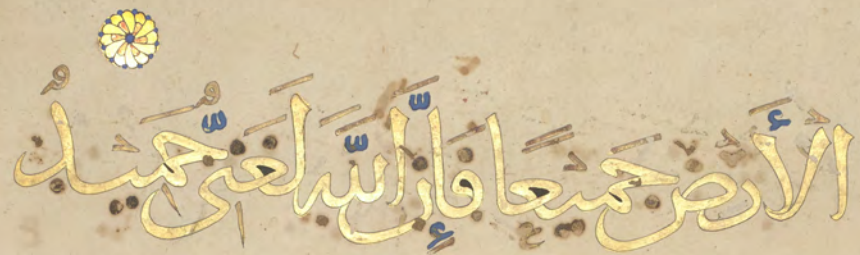 الْأَرْضِ جَمِيعًا فَإِنَّ اللَّهَ لَغَنِيٌّ حَمِيدٌ